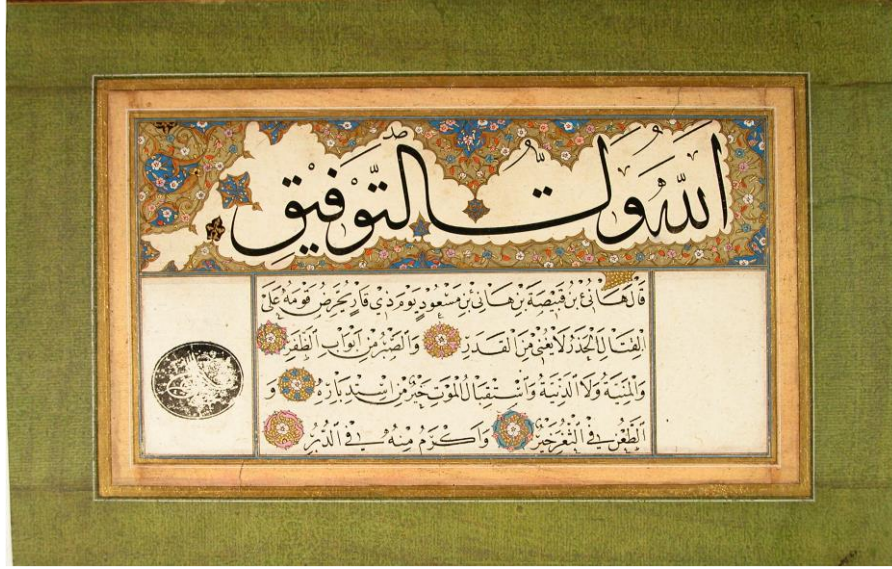 الله ولي التوفيق
قَالَ هَانِئُ بْنُ قَبِيصَةَ بْنِ هَانِئِ بْنِ مَسْعُودٍ يَوْمَ ذِي قَارٍ يُحَرِّضُ قَوْمَهُ عَلَى
الْقِتَالِ الْحَذَرُ لَا يُغْنِي مِنَ الْقَدَرِ وَالصَّبْرُ مِنْ أَبْوَابِ الظَّفَرِ
وَالْمَنِيَّةُ وَلَا الدَّنِيَّةُ وَاسْتِقْبَالُ الْمَوْتِ خَيْرٌ مِنِ اسْتِدْبَارِهِ وَ
الطَّعْنُ فِي الثُّغَرِ خَيْرٌ وَأَكْرَمُ مِنْهُ فِي الدُّبُرِ